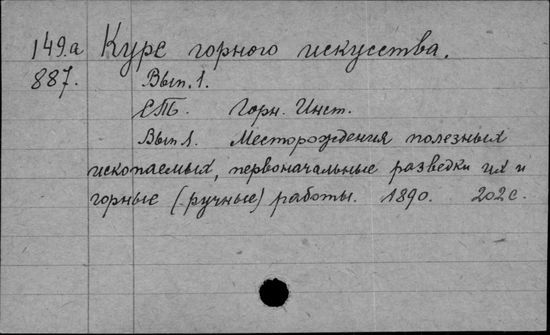 149.а Курс горного искусства.
887. Вып. 1.
СПб. Горн. Инст.
Вып. 1. Месторождения полезных
ископаемых, первоначальные разведки их и
горные (ручные) работы. 1890. 202 с.